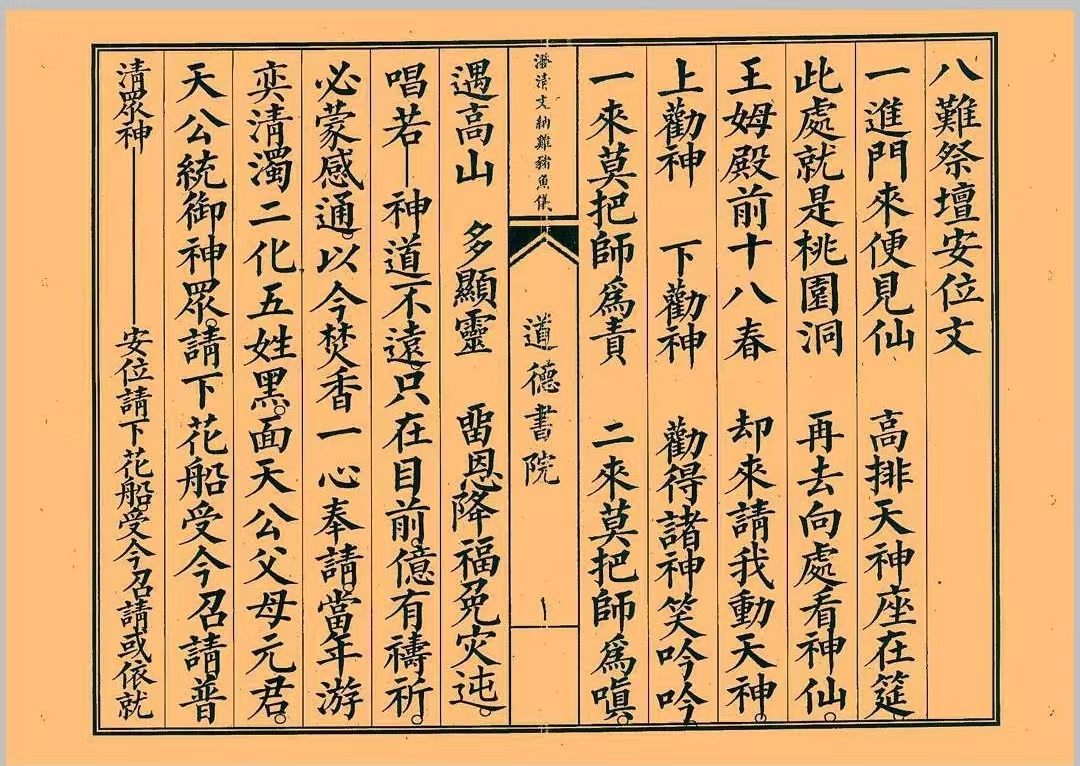 八難祭壇安位文
一進門來便見仙　高排天神座在筵。
此處就是桃園洞　再去向處看神仙。
王姆殿前十八春　却來請我動天神。
上勸神　下勸神　勸得諸神笑吟吟。
一來莫把師爲責　二來莫把師爲嗔。
清文納雞豬魚儀
道德書院
一
遇高山　多顯靈　畱恩降福免灾迍。
唱若—神道不遠。只在目前。億有禱祈。
必蒙感通。以今焚香一心奉請。當年游
奕清濁二化五姓黑。面天公父母元君。
天公統御神眾。請下花船受今召請。普
清眾神——安位請下花船。受今召請或依就